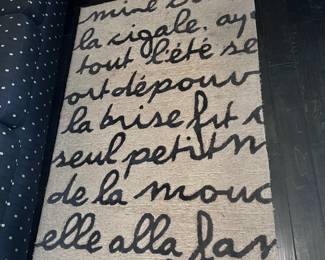 la cigale, ay
tout l'été se
ort dépourv
la brise fut
seul petit m
de la mouc
elle alla fam